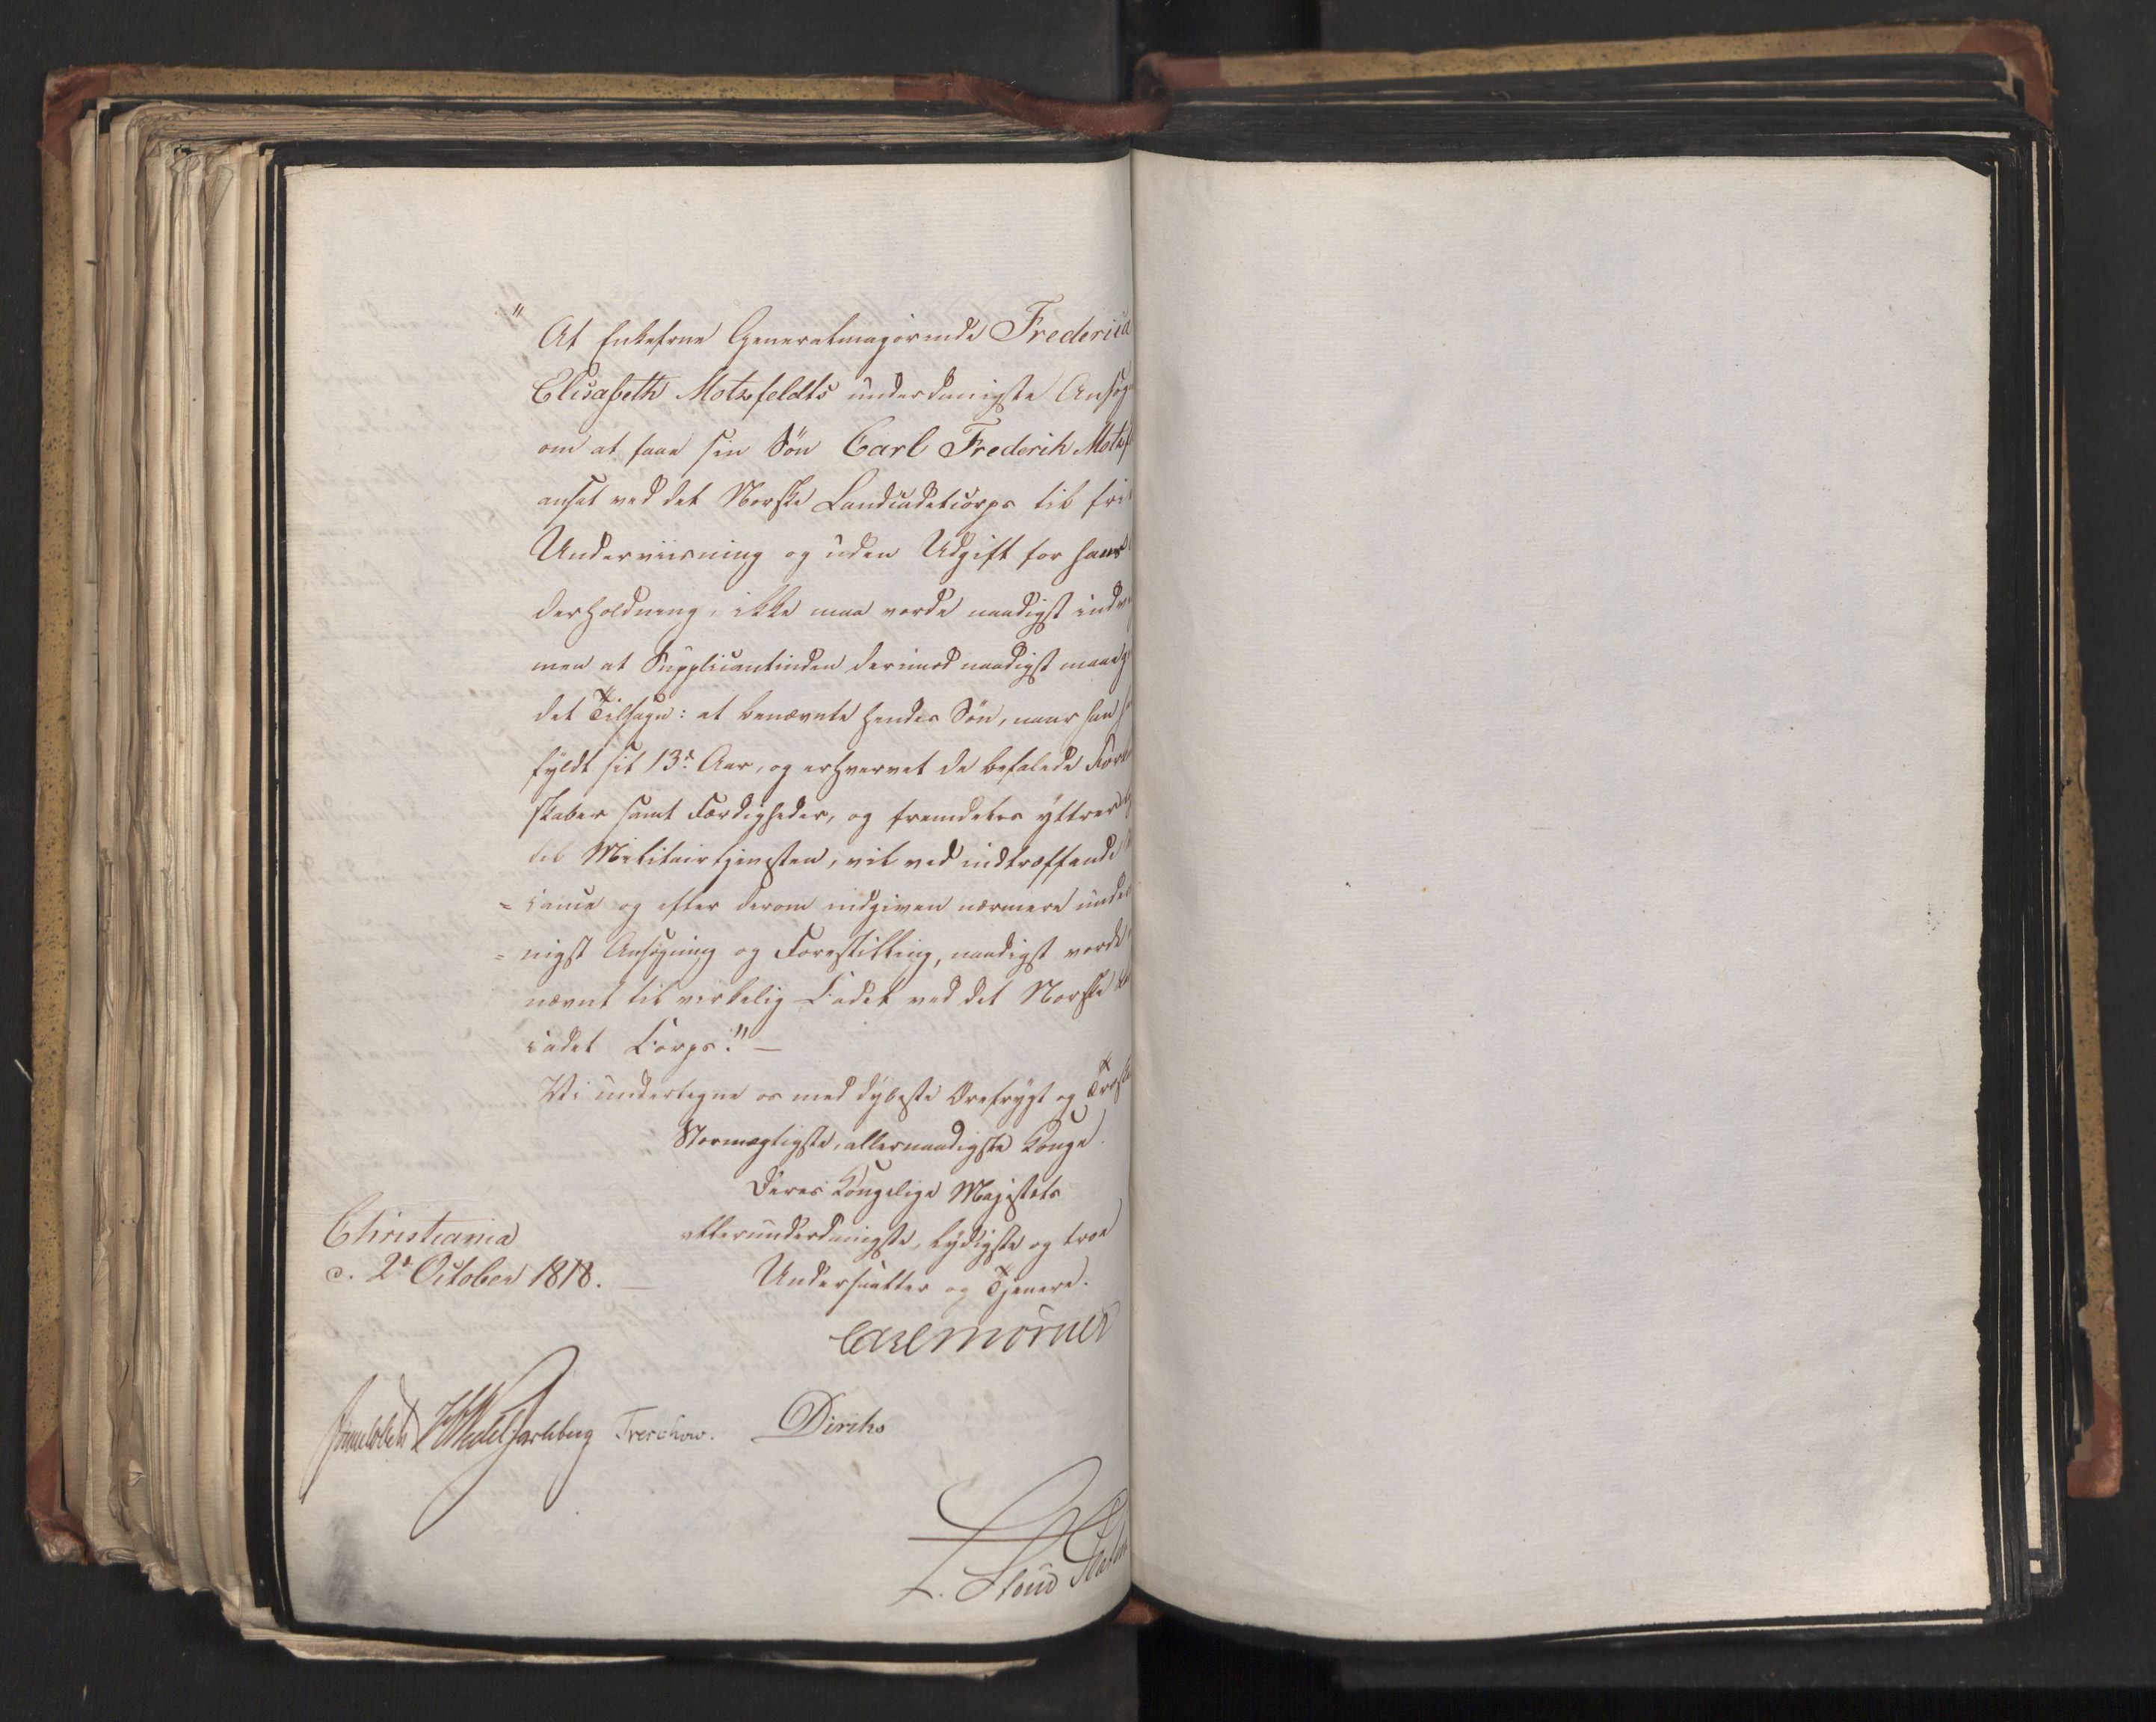 " At Enkefrue Generalmajorinde Frederica
Elisabeth Motzfeldts underdanigste Ansøg
om at faae sin Søn Carl Frederik Motzf
ansat ved det Norske Landcadetcorps til frie
Underviisning og uden Udgift for hans
derholdning, ikke maa vorde naadigst indv
men at Supplicantinden derimod naadigst maa g
det Tilsagn: at benævnte hendes Søn, naar han h
fyldt sit 13de Aar, og erhvervet de befalede Kund
skaber samt Færdigheder, og fremdeles yttrer
til Militairtjenesten, vil ved indtræffende
= cance og efter derom indgiven nærmere under
= nigst Ansøgning og Forestilling, naadigst vorde
nævnt til virkelig Cadet ved det Norske
cadet Corps." —
Vi undertegne os med dybeste Ærefrygt og Troska
Stormægtigste, allernaadigste Konge.
Deres Kongelige Majestæts
allerunderdanigste, lydigste og troe
Undersaatter og Tjenere.
Christiania
d. 2d October 1818. —
Carl Mörner
Sommelhielm HWedelJarlsberg Treschow. Diriks
L. Stoud Platou